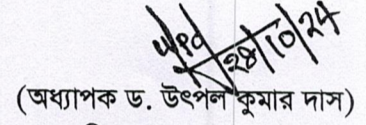 28/10/24
(অধ্যাপক ড. উৎপল কুমার দাস)